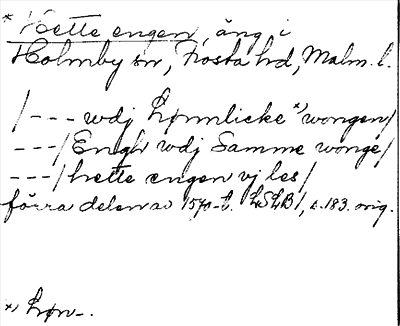 * Hette engen, äng i
Holmby sn, Frosta hd, Malm. l.
/--- wdj Lømlicke *) wongen/
---/ Engh wdj Samme wonge/
---/ hette engen vj les/
förra delen av 1570-t. LSLB1, s. 183. orig.
*) Løn-.